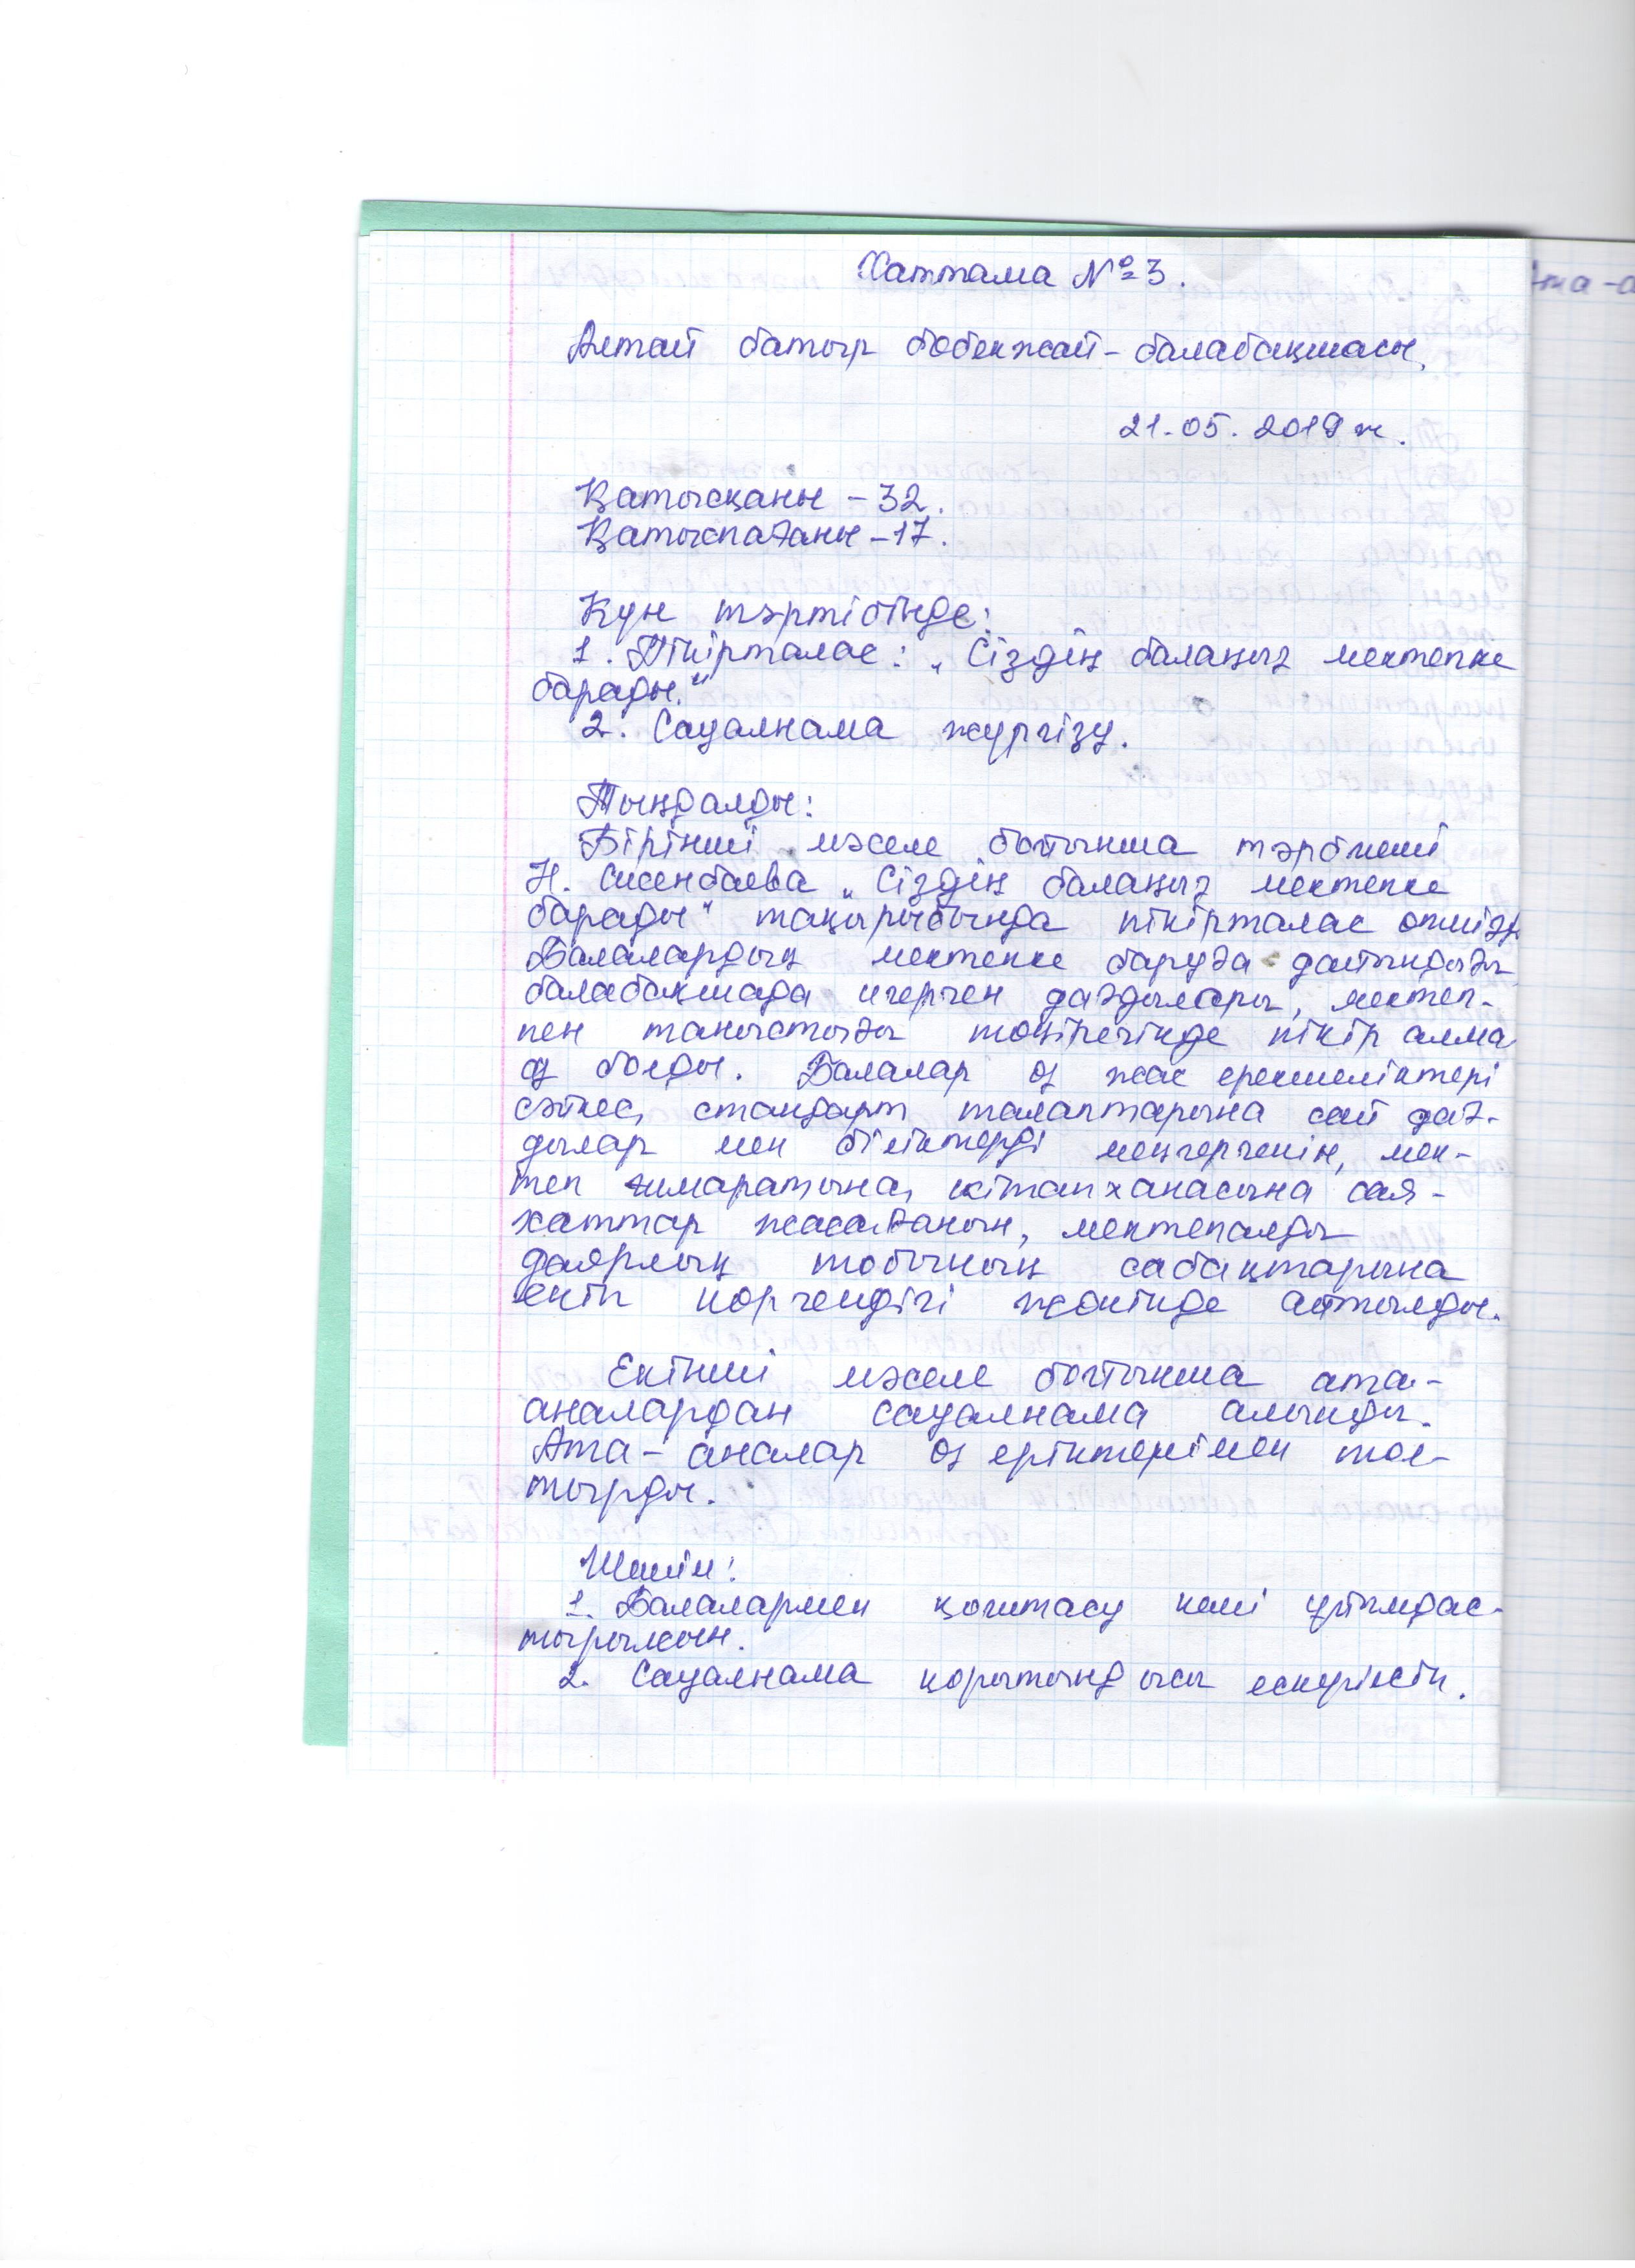 Хаттама № 3.
Алтай батыр бөбекжай-балабақшасы.
21.05.2019 ж.
Қатысқаны - 32.
Қатыспағаны - 17.
Күн тәртібінде:
1. Пікірталас: „Сіздің балаңыз мектепке
барады."
2. Сауалнама жүргізу.
Тыңдалды:
Бірінші мәселе бойынша тәрбиеші
Н. Сисенбаева „Сіздің балаңыз мектепке
барады" тақырыбында пікірталас өткізді
Балалардың мектепке баруға дайындығы
балабақшада игерген дағдылары, мектеп-
пен таныстығы төңірегінде пікір алма
су болды. Балалар өз жас ерекшеліктері
сәйкес, стандарт талаптарына сай дағ-
дылар мен біліктерді меңгергенін, мек-
теп ғимаратына, кітапханасына сая-
хаттар жасағанын, мектепалды
даярлық тобының сабақтарына
еніп көргендігі жөнінде айтылды.
Екінші мәселе бойынша ата-
аналардан сауалнама алынды.
Ата-аналар өз еріктерімен тол-
тырды.
Шешім:
1. Балалармен қоштасу кеші ұйымдас-
тырылсын.
2. Сауалнама қорытындысы ескерілсін.